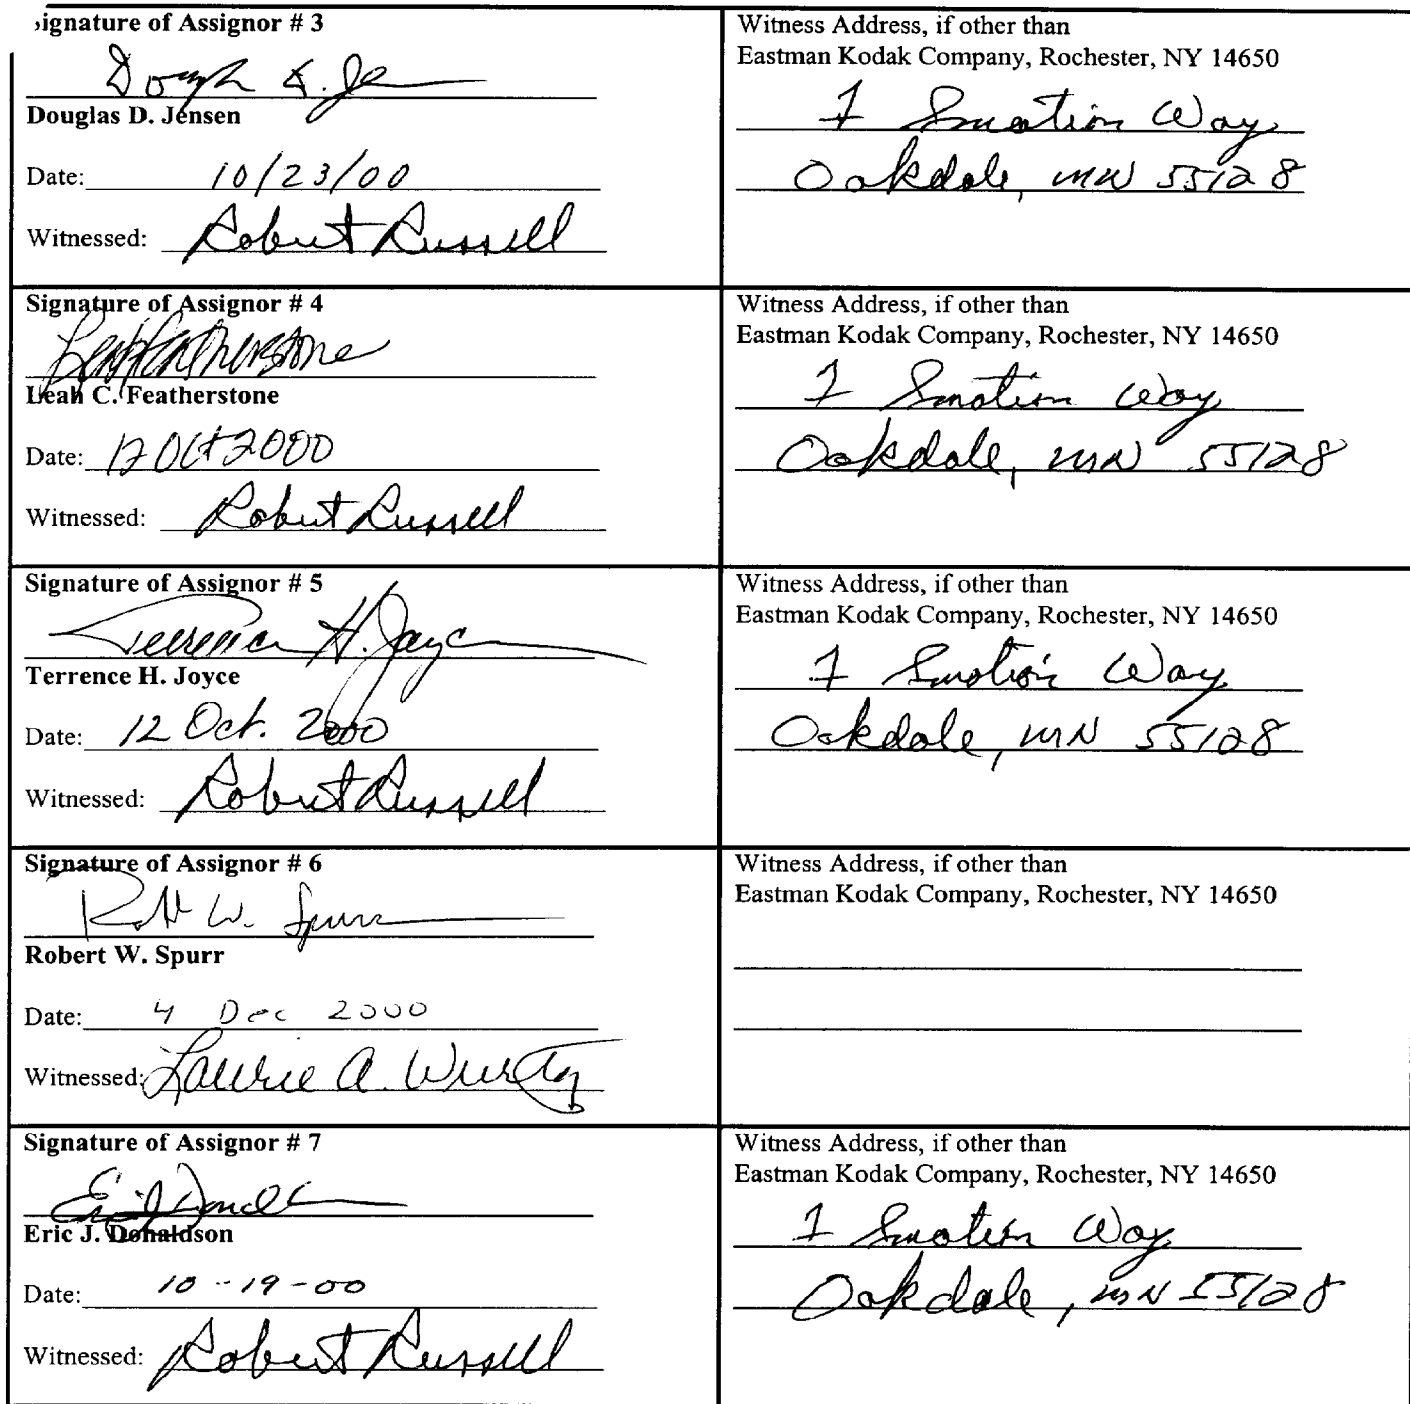 signature of Assignor # 3
Douglas D. Jensen
Date: 10/23/00
Witnessed: Robert Russell
Witness Address, if other than
Eastman Kodak Company, Rochester, NY 14650
1 Imation Way
Oakdale, MN 55128
Signature of Assignor # 4
Leah Featherstone
Leah C. Featherstone
Date: 12 Oct 2000
Witnessed: Robert Russell
Witness Address, if other than
Eastman Kodak Company, Rochester, NY 14650
1 Imation Way
Oakdale, MN 55128
Signature of Assignor # 5
Terrence H. Joyce
Terrence H. Joyce
Date: 12 Oct. 2000
Witnessed: Robert Russell
Witness Address, if other than
Eastman Kodak Company, Rochester, NY 14650
1 Imation Way
Oakdale, MN 55128
Signature of Assignor # 6
Robt W. Spurr
Robert W. Spurr
Date: 4 Dec 2000
Witnessed: Laurie A.
Witness Address, if other than
Eastman Kodak Company, Rochester, NY 14650
Signature of Assignor # 7
Eric J. Donaldson
Date: 10-19-00
Witnessed: Robert Russell
Witness Address, if other than
Eastman Kodak Company, Rochester, NY 14650
1 Imation Way
Oakdale, MN 55128